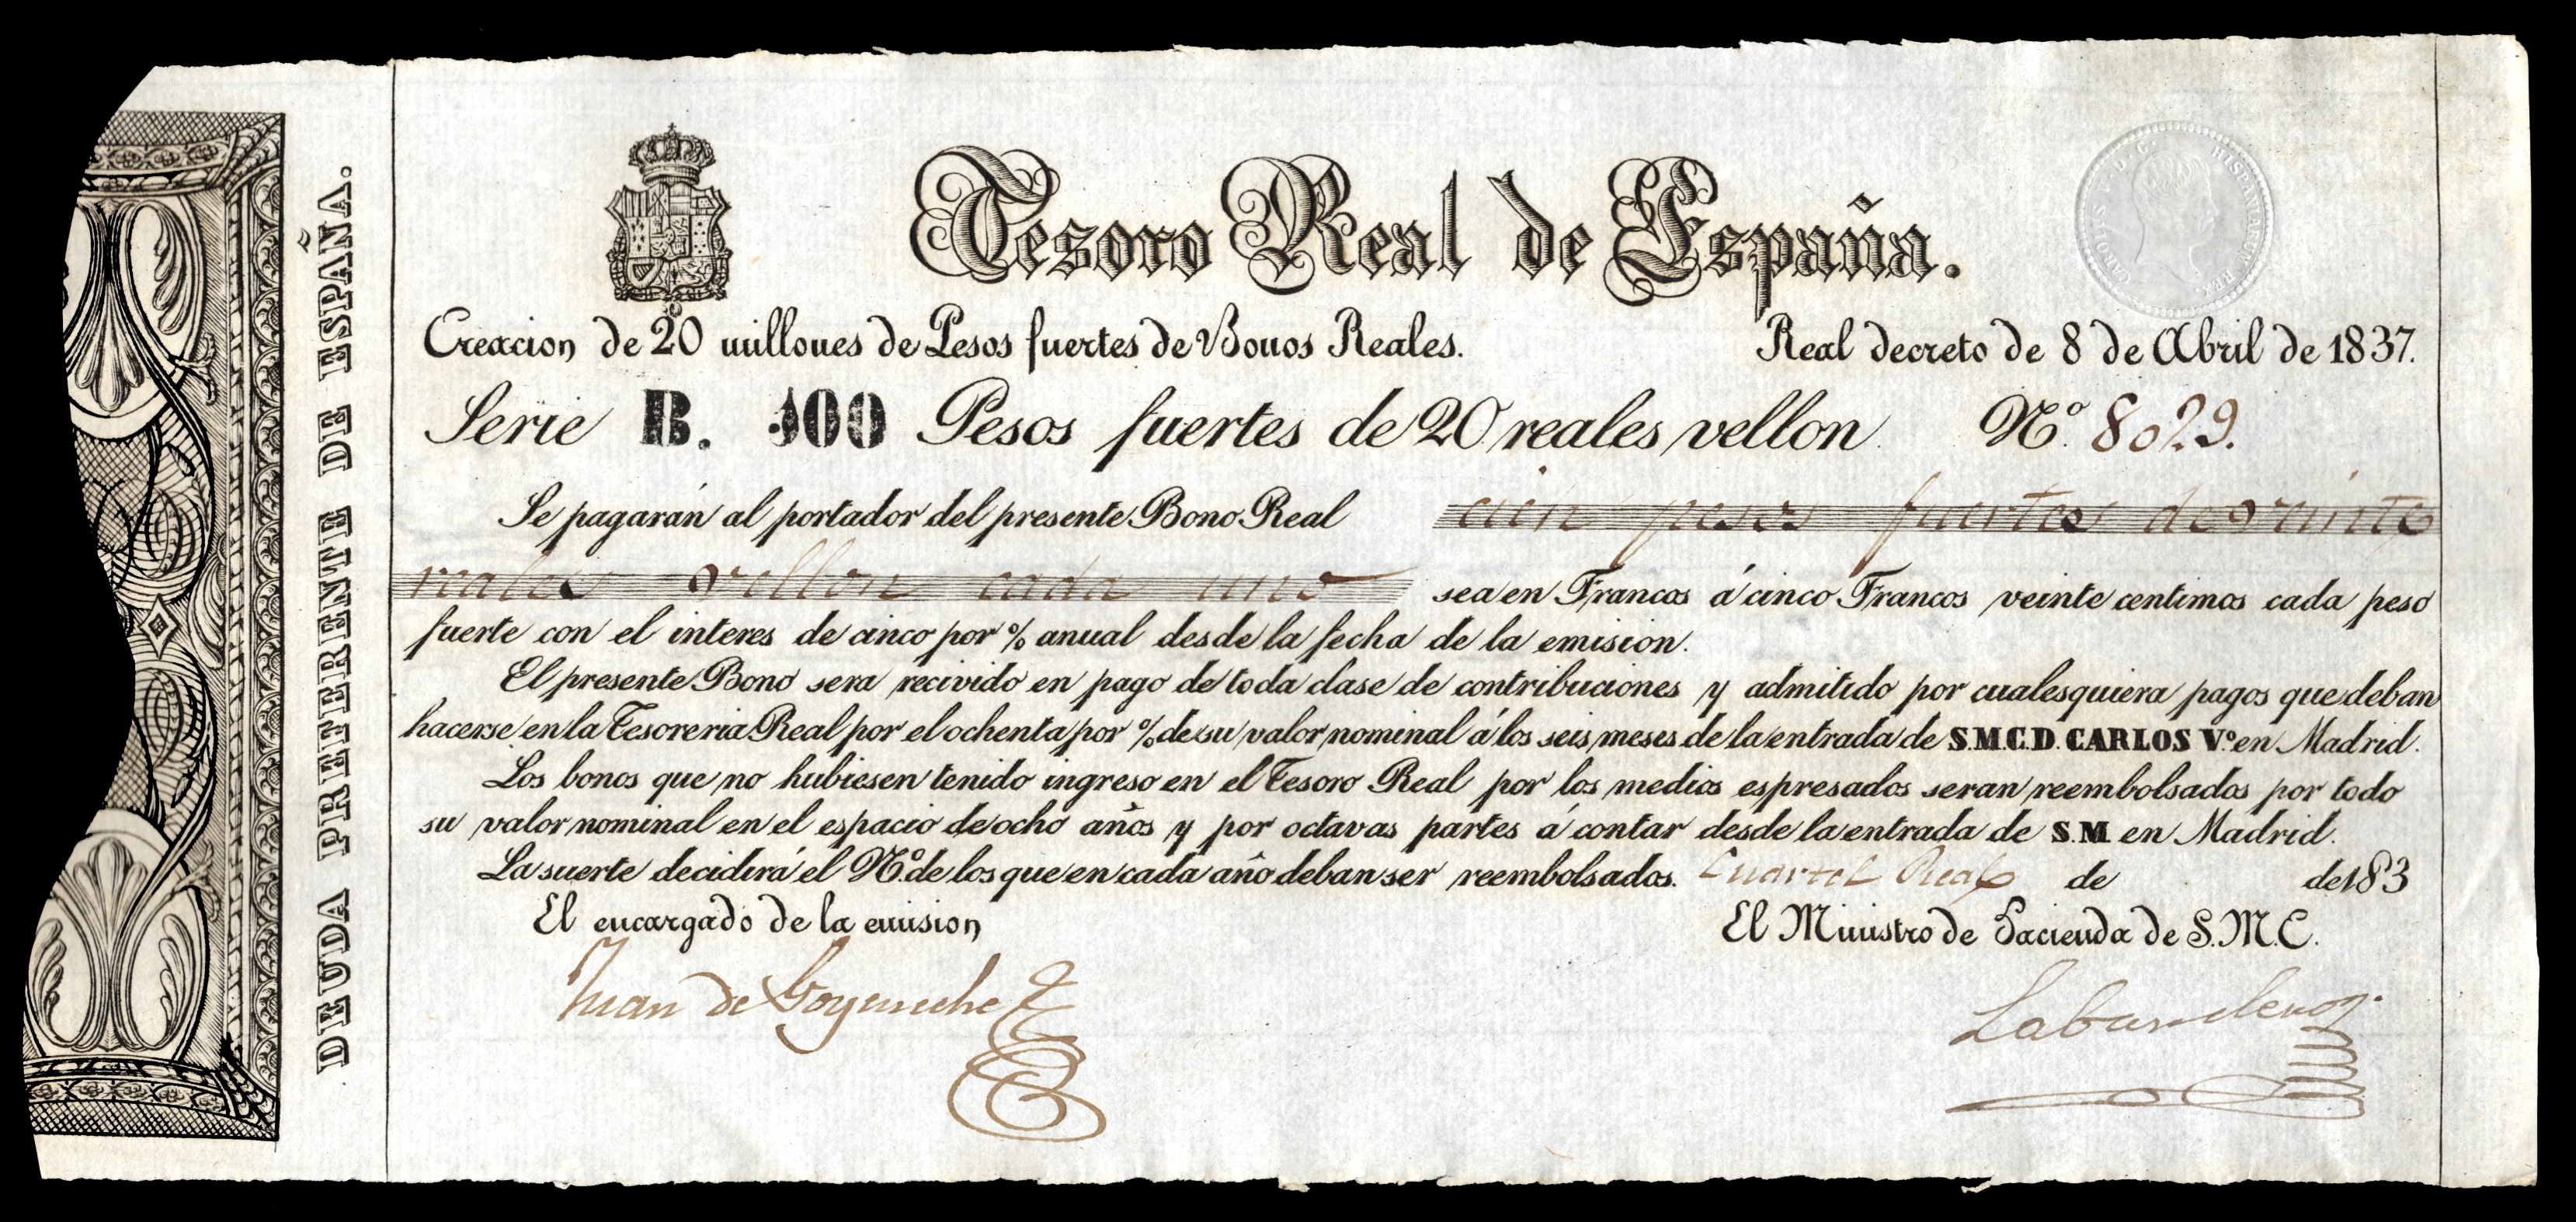 DEUDA PREFERENTE DE ESPAÑA.
Tesoro Real de España.
CAROL. V. D. G. HISPANIARUM REX
Creacion de 20 millones de Pesos fuertes de Bonos Reales. Real decreto de 8 de Abril de 1837.
Serie B. 100 Pesos fuertes de 20 reales vellon Nº. 8029.
Se pagarán al portador del presente Bono Real cien pesos fuertes de veinte
reales vellon cada uno sea en Francos á cinco Francos veinte centimos cada peso
fuerte con el interes de cinco por % anual desde la fecha de la emision.
El presente Bono sera recivido en pago de toda clase de contribuciones y admitido por cualesquiera pagos que deban
hacerse en la Tesoreria Real por el ochenta por % de su valor nominal á los seis meses de la entrada de S.M.C.D. CARLOS Vº. en Madrid.
Los bonos que no hubiesen tenido ingreso en el Tesoro Real por los medios espresados seran reembolsados por todo
su valor nominal en el espacio de ocho años y por octavas partes á contar desde la entrada de S.M. en Madrid.
La suerte decidirá el Nº. de los que en cada año deban ser reembolsados. Cuartel Real de de 183
El encargado de la emision El Ministro de Hacienda de S.M.C.
Juan de Goyeneche Labandero